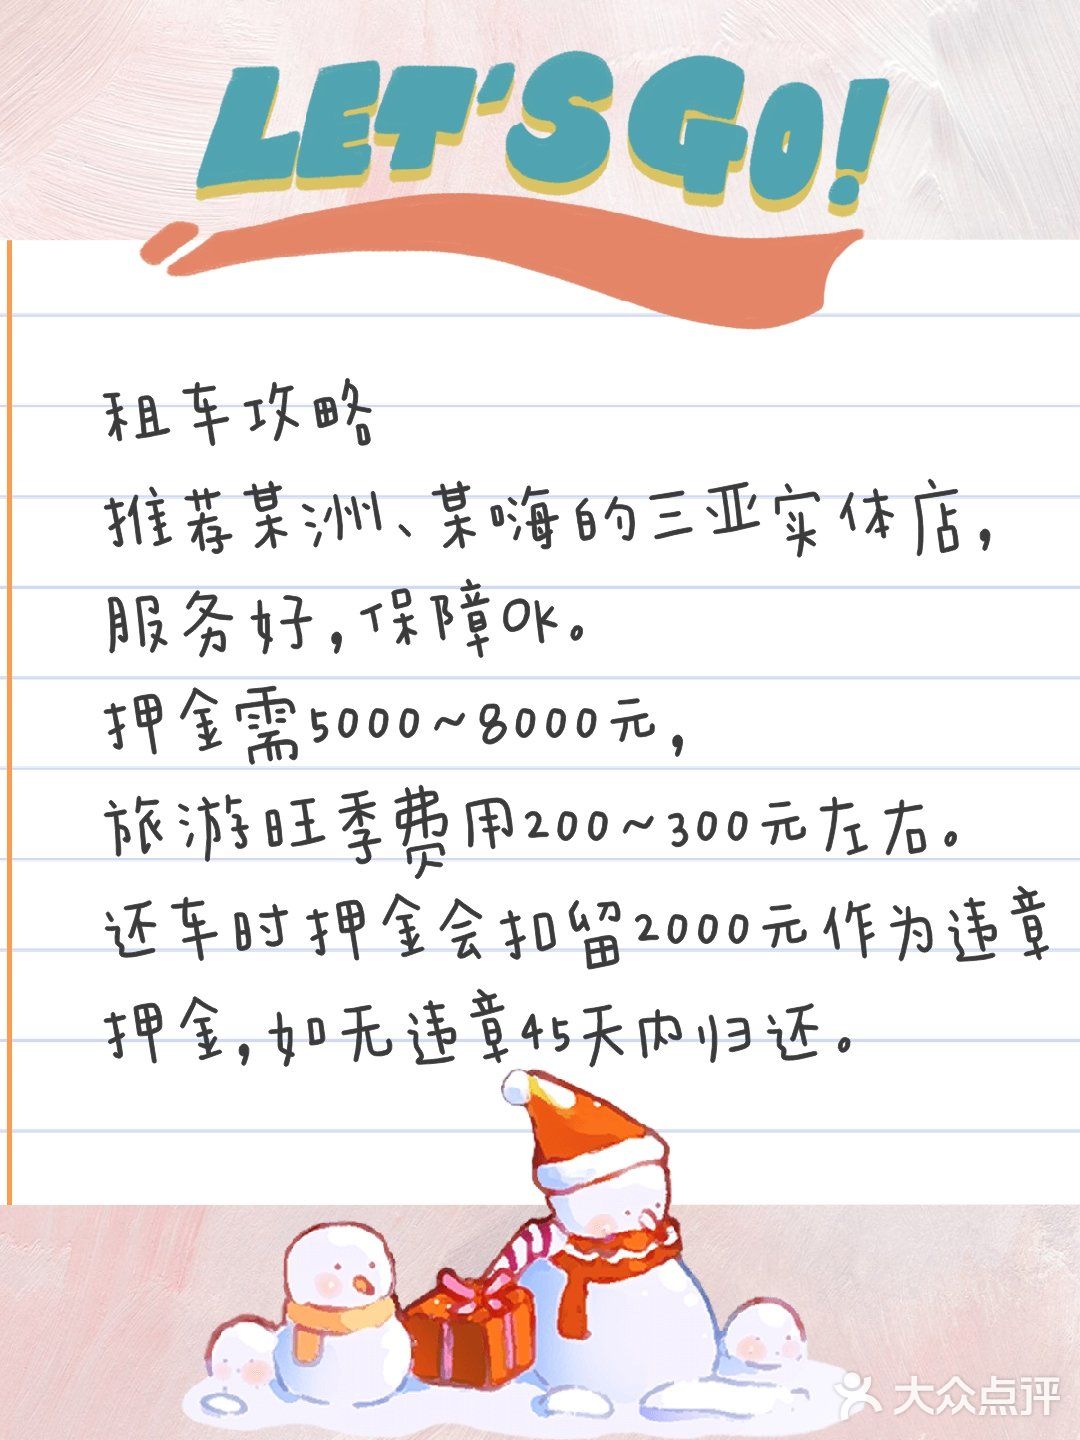 LET'S GO!
租车攻略
推荐某洲、某嗨的三亚实体店,
服务好,保障OK。
押金需5000~8000元,
旅游旺季费用200~300元左右。
还车时押金会扣留2000元作为违章
押金,如无违章45天内归还。
大众点评